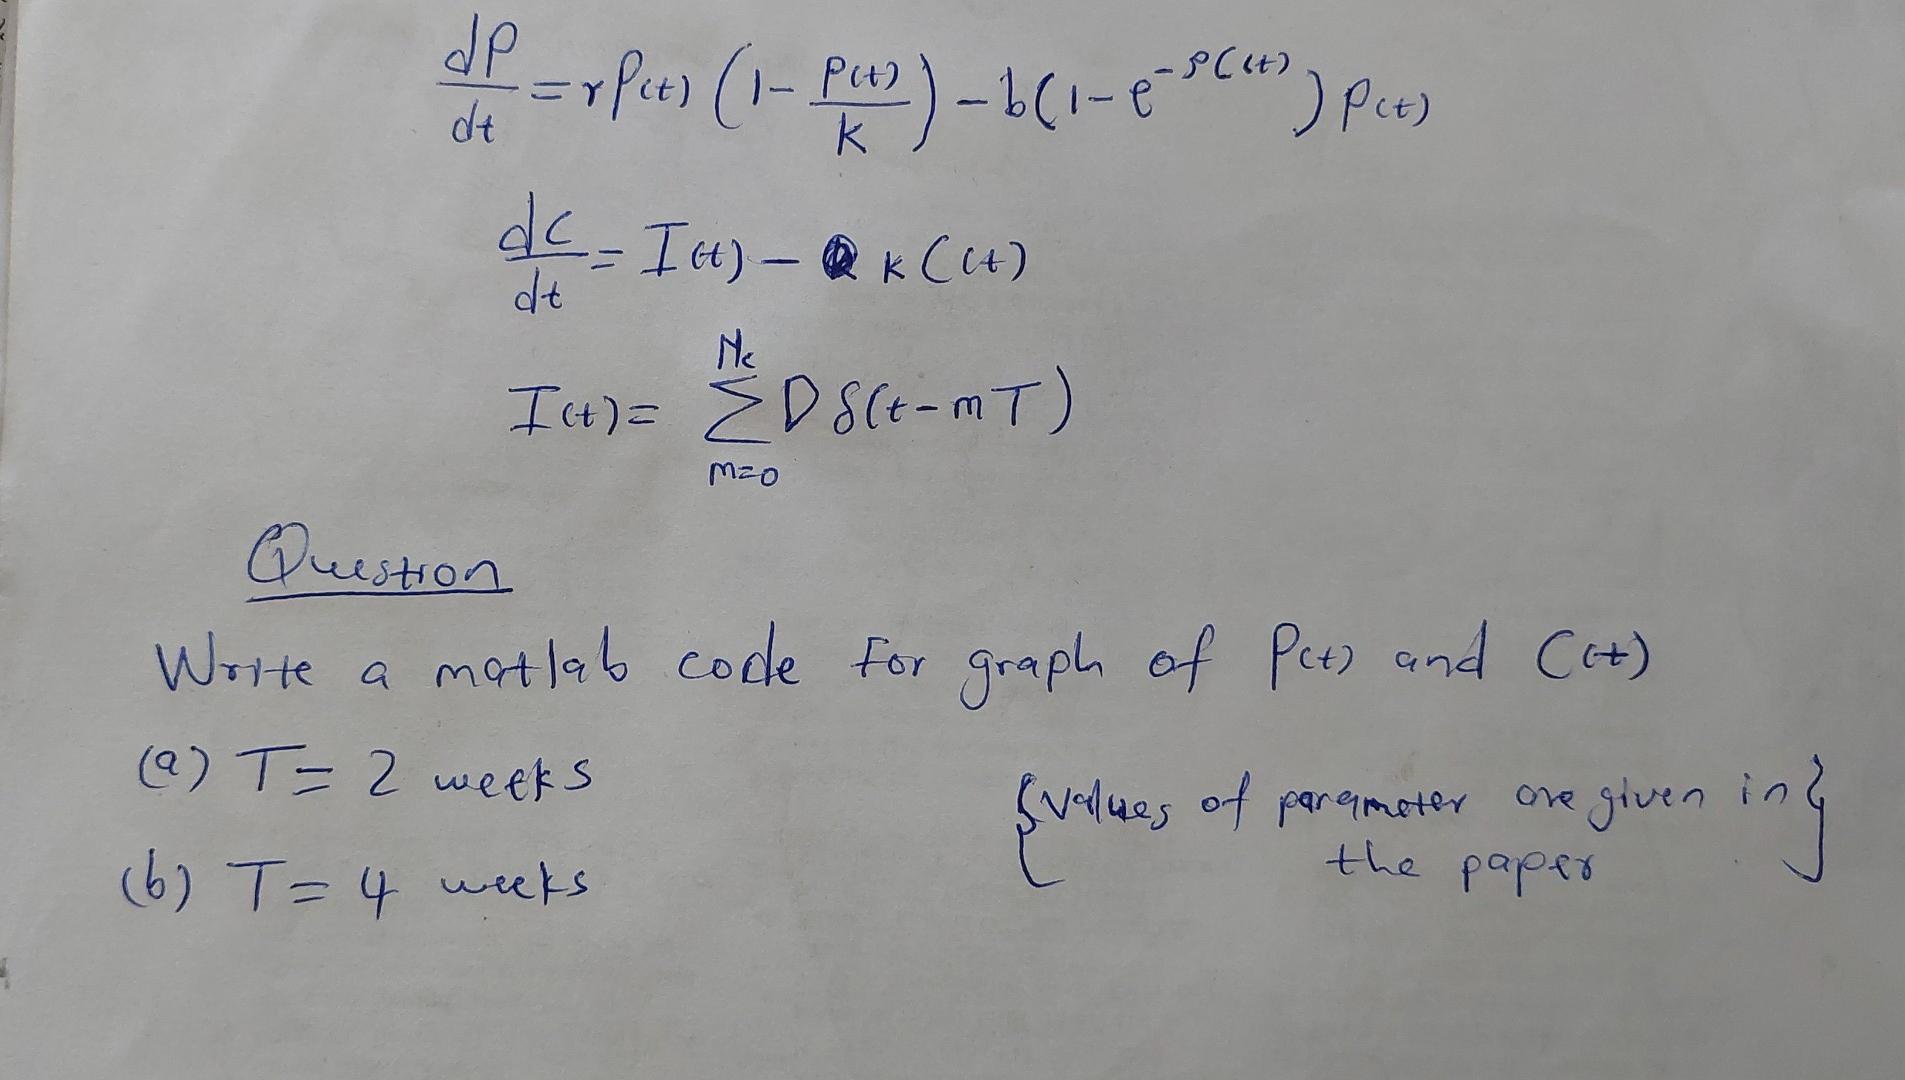 dP/dt = rP(t) (1 - P(t)/K) - b(1 - e^{-ρC(t)}) P(t)
dC/dt = I(t) - k C(t)
I(t) = Σ_{m=0}^{Nc} D δ(t - mT)
Question
Write a matlab code for graph of P(t) and C(t)
(a) T = 2 weeks
{values of parameter are given in}
the paper
(b) T = 4 weeks